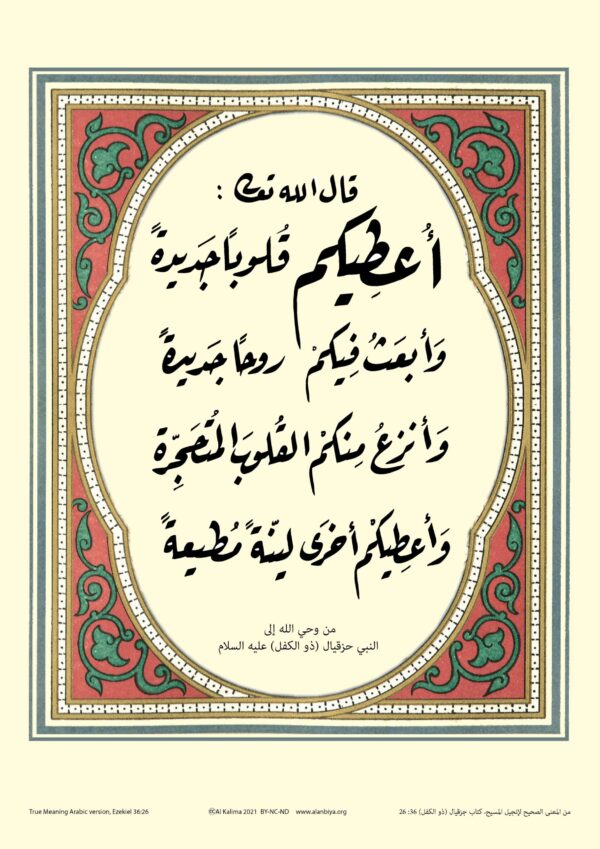 قال الله تعالى :
أُعطِيكم قُلوبًا جَديدةً
وَأبعَثُ فِيكمْ روحًا جَديدةً
وَأنزعُ مِنكمْ القُلوبَ المُتَحَجِّرة
وَأعطِيكمْ أخرَى ليّنةً مُطيعةً
من وحي الله إلى
النبي حزقيال (ذو الكفل) عليه السلام
True Meaning Arabic version, Ezekiel 36:26
Al Kalima 2021 BY-NC-ND www.alanbiya.org
من المعنى الصحيح لإنجيل المسيح، كتاب حزقيال (ذو الكفل) 36: 26